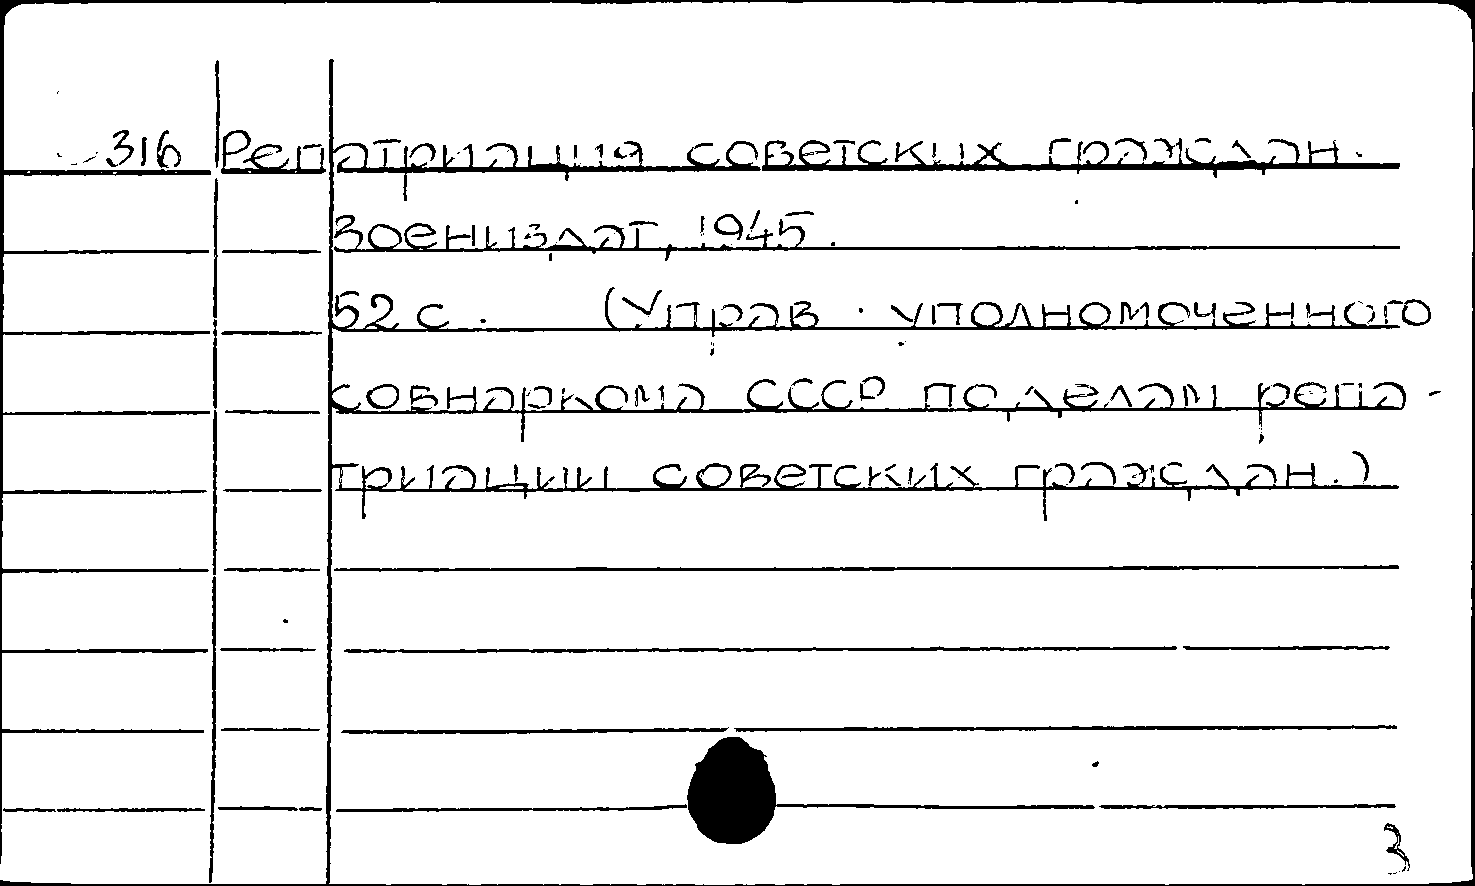 316 Репатриация советских граждан.
Воениздат, 1945.
52 с. (Управ. уполномоченного
совнаркома СССР по делам репа-
триации советских граждан.)
3